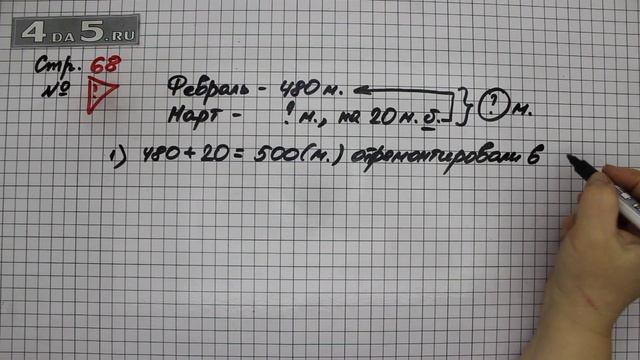 4DA5.RU
Стр. 68
№ !
Февраль - 480 м.
Март - ? м., на 20 м. б. } ? м.
1) 480 + 20 = 500 (м.) отремонтировали в